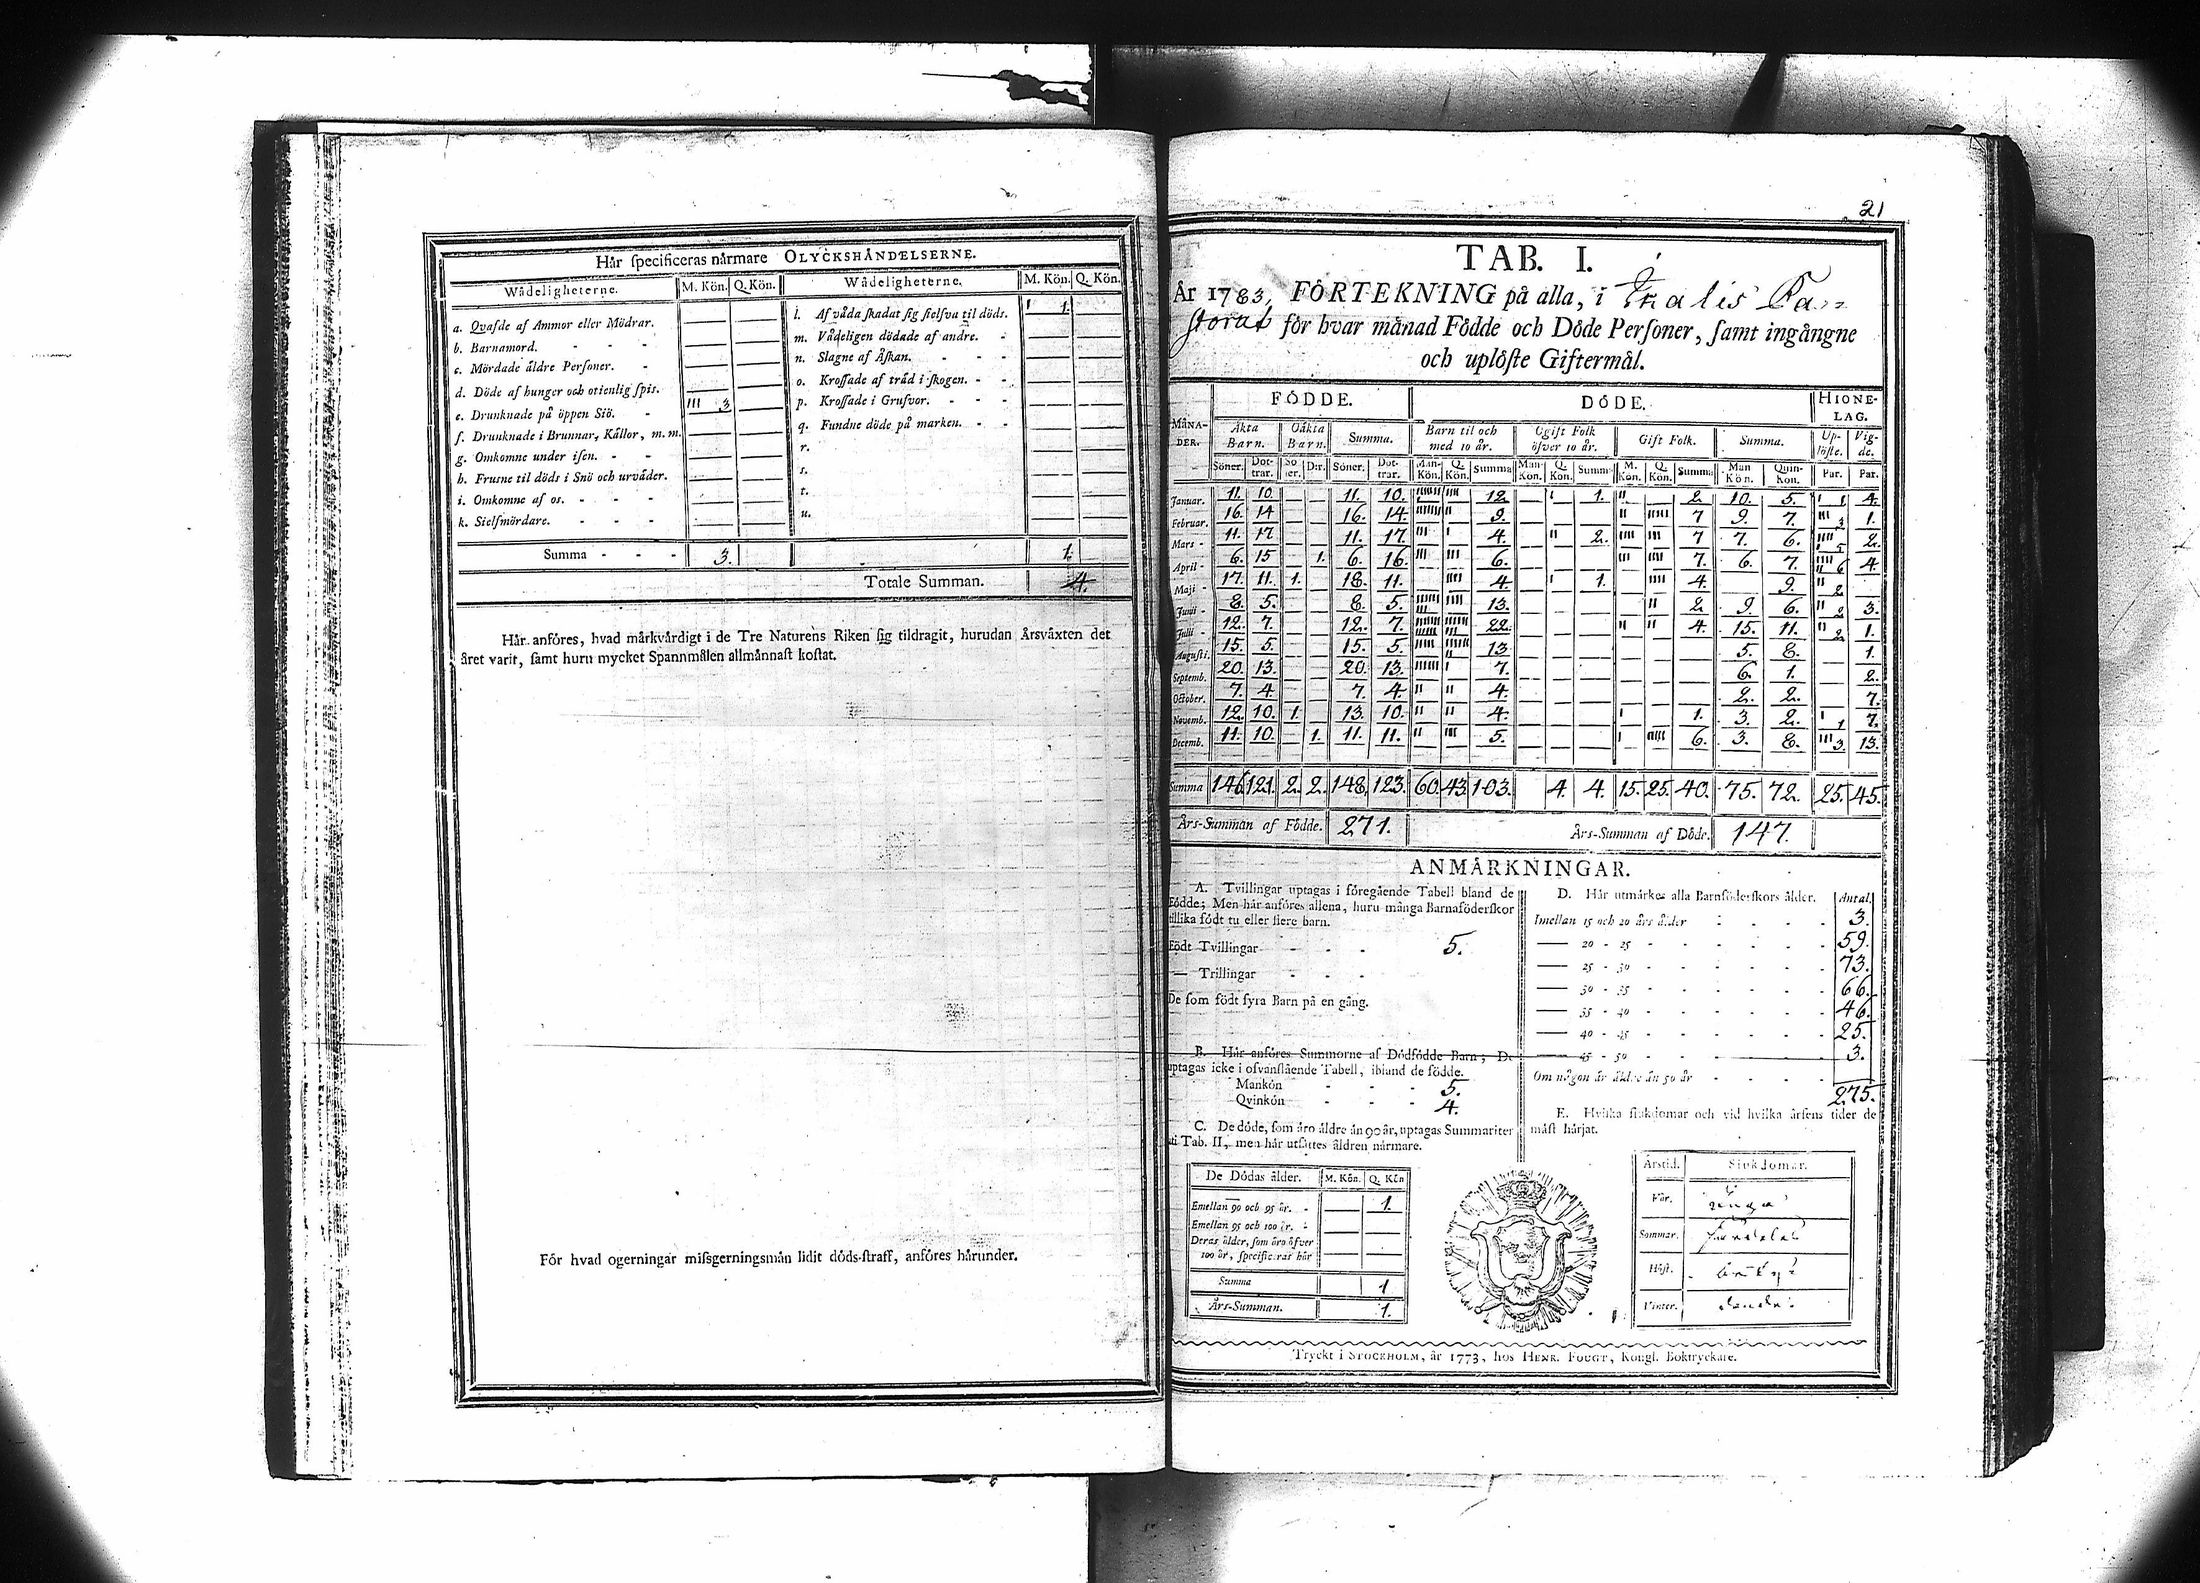 Här specificeras närmare OLYCKSHÄNDELSERNE.
Wådeligheterne. M. Kön. Q. Kön. Wådeligheterne. M. Kön. Q. Kön.
a. Qvafde af Ammor eller Mödrar. — — l. Af våda skadat sig sielfva til döds. 1. —
b. Barnamord. — — m. Vådeligen dödade af andre. — —
c. Mördade äldre Personer. — — n. Slagne af Åskan. — —
d. Döde af hunger och otienlig spis. — — o. Krossade af träd i skogen. — —
e. Drunknade på öppen Siö. III 3 — p. Krossade i Grufvor. — —
f. Drunknade i Brunnar, Källor, m. m. — — q. Fundne döde på marken. — —
g. Omkomne under isen. — — r. — —
h. Frusne til döds i Snö och urväder. — — s. — —
i. Omkomne af os. — — t. — —
k. Sielfmördare. — — u. — —
Summa - - - 3. 1.
Totale Summan. 4.
Här anföres, hvad märkvärdigt i de Tre Naturens Riken sig tildragit, hurudan Årsväxten det
året varit, samt huru mycket Spannmålen allmännast kostat.
För hvad ogerningar missgerningsmän lidit döds-straff, anföres härunder.
21
TAB. I.
År 1783, FÖRTEKNING på alla, i
för hvar månad Födde och Döde Personer, samt ingångne
och uplöste Giftermål.
FÖDDE. DÖDE. HIONE-
LAG.
MÅNA-
DER. Äkta
Barn. Oäkta
Barn. Summa. Barn til och
med 10 år. Ogift Folk
öfver 10 år. Gift Folk. Summa. Up-
löste. Vig-
de.
Söner. Dot-
trar. Sö
ner. Dr. Söner. Dot-
trar. Man-
Kön. Q.
Kön. Summa Man-
Kön. Q.
Kön. Summ M.
Kön. Q.
Kön. Summa Man
Kön. Quin-
Kön. Par. Par.
Januar. 11. 10. — — 11. 10. 12. — 1. 2 10. 5. 1 4.
Februar. 16. 14 — — 16. 14. 9. — — — 7 9. 7. 3 1.
Mars - 11. 17 — — 11. 17. 4. — 2. 7 7. 6. 5 2.
April - 6. 15 — 1. 6. 16. 6. — — — 7. 6. 7. 6 4.
Maji - 17. 11. 1. — 18. 11. 4. — 1. 4. 9. 2
Junii - 8. 5. — — 8. 5. 13. — — — 2 9 6. 2 3.
Julii - 12. 7. — — 12. 7. 22. — — — 4. 15. 11. 2 1.
Augusti. 15. 5. — — 15. 5. 13 — — — 5. 8. — 1.
Septemb. 20. 13. — — 20. 13. 7. — — — 6. 1. — 2.
October. 7. 4. — — 7. 4. 4. — — — 2. 2. — 7.
Novemb. 12. 10. 1. — 13. 10. 4. — — — 1. 3. 2. 1 7.
Decemb. 11. 10. — 1. 11. 11. 5. — — — 6. 3. 8. 3. 13.
Summa 146 121. 2. 2. 148 123. 60. 43 103. 4. 4. 15. 25. 40. 75. 72. 25. 45.
Års-Summan af Födde. 271. Års-Summan af Döde. 147.
ANMÄRKNINGAR.
A. Tvillingar uptagas i föregående Tabell bland de
Födde; Men här anföres allena, huru många Barnaföderskor
tillika födt tu eller flere barn.
Födt Tvillingar - - - 5.
— Trillingar - - -
De som födt fyra Barn på en gång.
B. Här anföres Summorne af Dödfödde Barn; De
uptagas icke i ofvanstående Tabell, ibland de födde.
Mankön - - - 5.
Qvinkön - - - 4.
C. De döde, som äro äldre än 90 år, uptagas Summariter
uti Tab. II, men här utsättes åldren närmare.
De Dödas ålder. M. Kön. Q. Kön
Emellan 90 och 95 år. - — 1.
Emellan 95 och 100 år. - — —
Deras ålder, som äro öfver
100 år, specificerar här — —
Summa 1
Års-Summan. 1.
D. Här utmärkes alla Barnföderskors ålder. Antal.
Imellan 15 och 20 års ålder 3.
— 20 - 25 59.
— 25 - 30 73.
— 30 - 35 66.
— 35 - 40 46.
— 40 - 45 25.
— 45 - 50 3.
Om någon är äldre än 50 år
275.
E. Hvilka siukdomar och vid hvilka årsens tider de
mäst härjat.
Årstid. Siukdomar.
Vår.
Sommar.
Höst.
Vinter.
Tryckt i STOCKHOLM, år 1773, hos HENR. FOUGT, Kongl. Boktryckare.